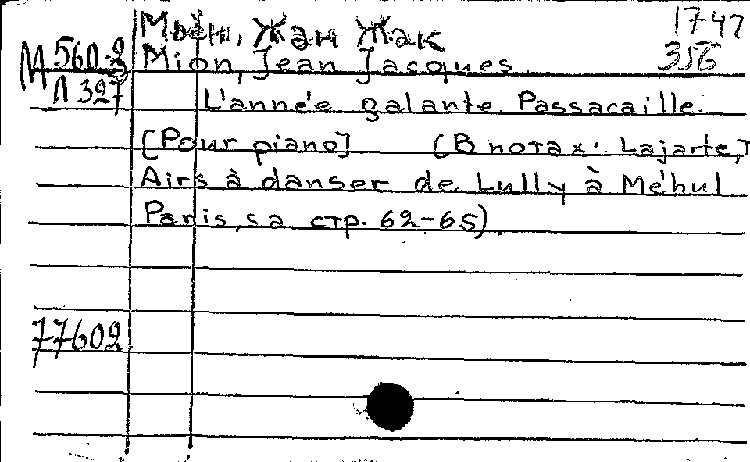 Мьён, Жан Жак 1747
М 560-2 Mion, Jean Jacques 356
Л 327 L'année galante. Passacaille.
[Pour piano] (В нотах: Lajarte, T
Airs à danser de Lully à Méhul
Paris, s a стр. 62-65).
77602